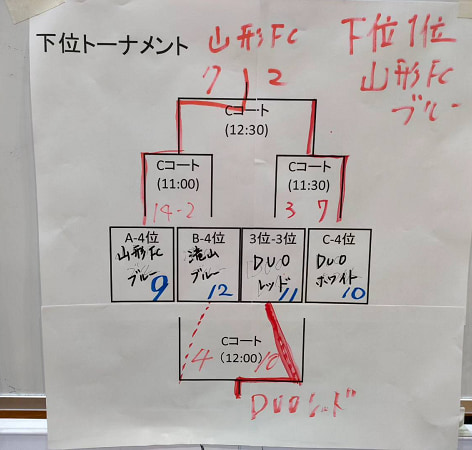 下位トーナメント 山形FC 下位1位
7 2 山形FC
ブルー
Cコート
(12:30)
Cコート Cコート
(11:00) (11:30)
14-2 3 7
A-4位 B-4位 3位-3位 C-4位
山形FC 流山 DUO DUO
ブルー ブルー レッド ホワイト
9 12 11 10
Cコート
4 (12:00) 10
DUOレッド